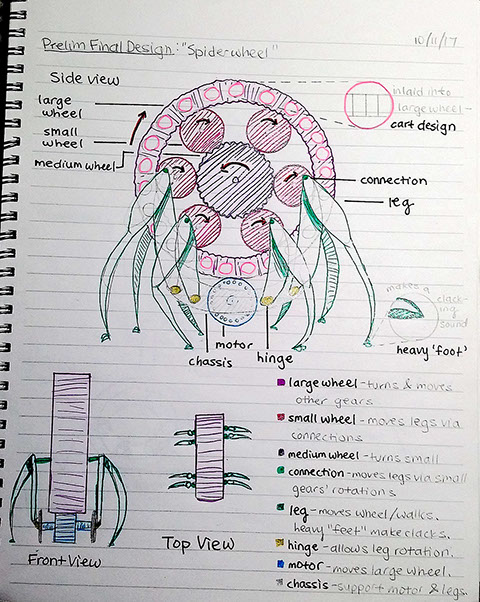 Prelim Final Design: "Spiderwheel"
10/11/17
Side view
large
wheel
small
wheel
medium wheel
inlaid into
large wheel -
cart design
connection
leg
makes a
clack-
ing
sound
heavy 'foot'
motor
chassis
hinge
large wheel - turns & moves
other gears
small wheel - moves legs via
connections
medium wheel - turns small
connection - moves legs via small
gears' rotations
leg - moves wheel/walks.
heavy "feet" make clacks.
hinge - allows leg rotation.
motor - moves large wheel.
chassis - support motor & legs.
Front View
Top View